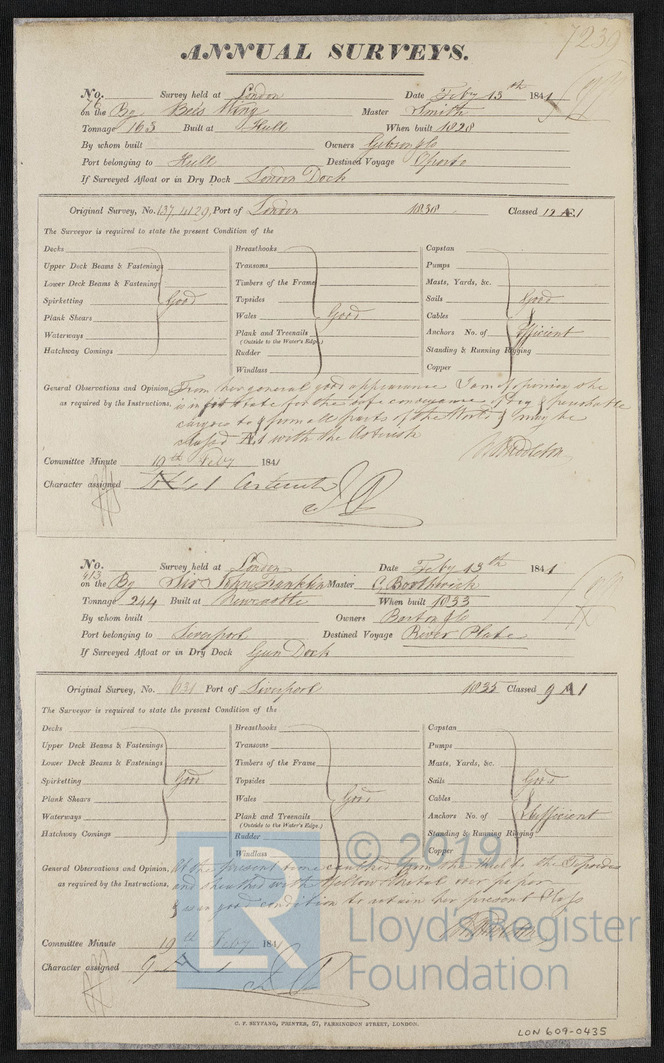 7239
ANNUAL SURVEYS.
No. 76 Survey held at London Date Feby 13th 1841
on the Bg Bees Wing Master Smith
Tonnage 163 Built at Hull When built 1828
By whom built Owners Gibson & Co
Port belonging to Hull Destined Voyage Oporto
If Surveyed Afloat or in Dry Dock London Dock
Original Survey, No. 137 4129, Port of London 1838 Classed 12 Æ 1
The Surveyor is required to state the present Condition of the
Decks Breasthooks Capstan
Upper Deck Beams & Fastenings Transoms Pumps
Lower Deck Beams & Fastenings Timbers of the Frame Masts, Yards, &c.
Spirketting Good Topsides Sails Good
Plank Shears Wales Good Cables
Waterways Plank and Treenails Anchors No. of Efficient
(Outside to the Water's Edge.)
Hatchway Comings Rudder Standing & Running Rigging
Windlass Copper
General Observations and Opinion, From her general good appearance I am of opinion she
as required by the Instructions, is in fit state for the safe conveyance of Dry & perishable
cargoes to & from all parts of the World & may be
Class'd Æ1 with the Asterisk
Middleton
Committee Minute 19th Feby 1841
Character assigned 1 Asterisk
No. 413 Survey held at London Date Feby 13th 1841
on the Bg Sir John Franklin Master C. Borthwick
Tonnage 244 Built at Newcastle When built 1833
By whom built Owners Barton & Co
Port belonging to Liverpool Destined Voyage River Plate
If Surveyed Afloat or in Dry Dock Gun Dock
Original Survey, No. 631 Port of Liverpool 1835 Classed 9 A 1
The Surveyor is required to state the present Condition of the
Decks Breasthooks Capstan
Upper Deck Beams & Fastenings Transoms Pumps
Lower Deck Beams & Fastenings Timbers of the Frame Masts, Yards, &c.
Spirketting Good Topsides Sails Good
Plank Shears Wales Good Cables
Waterways Plank and Treenails Anchors No. of Efficient
(Outside to the Water's Edge.)
Hatchway Comings Rudder Standing & Running Rigging
Windlass Copper
General Observations and Opinion, At the present time caulked from the Keel to the Topsides
as required by the Instructions, and sheathed with Yellow Metal over paper
& is in good condition to retain her present Class
Committee Minute 19th Feby 1841
Character assigned 9 A 1
© 2019
LR
Lloyd's Register
Foundation
C. F. SEYFANG, PRINTER, 57, FARRINGDON STREET, LONDON.
LON 609-0435